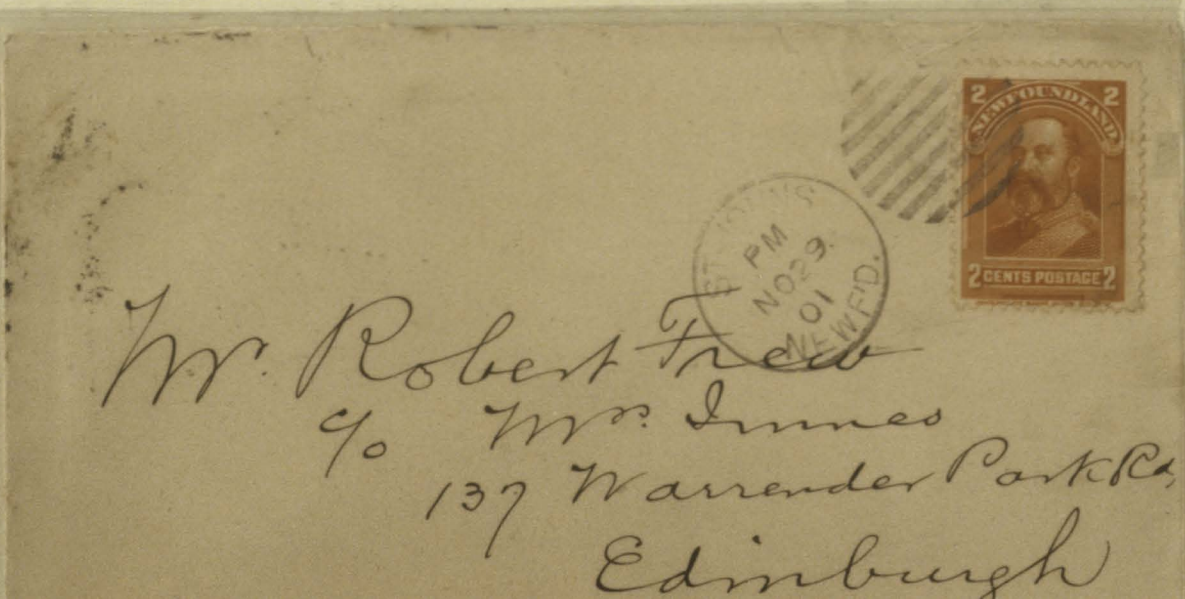 2 NEWFOUNDLAND 2
2 CENTS POSTAGE 2
ST. JOHN'S
PM
NO 29
01
NEWF'D.
Mr. Robert Frew
c/o Mrs. Innes
137 Warrender Park Rd,
Edinburgh